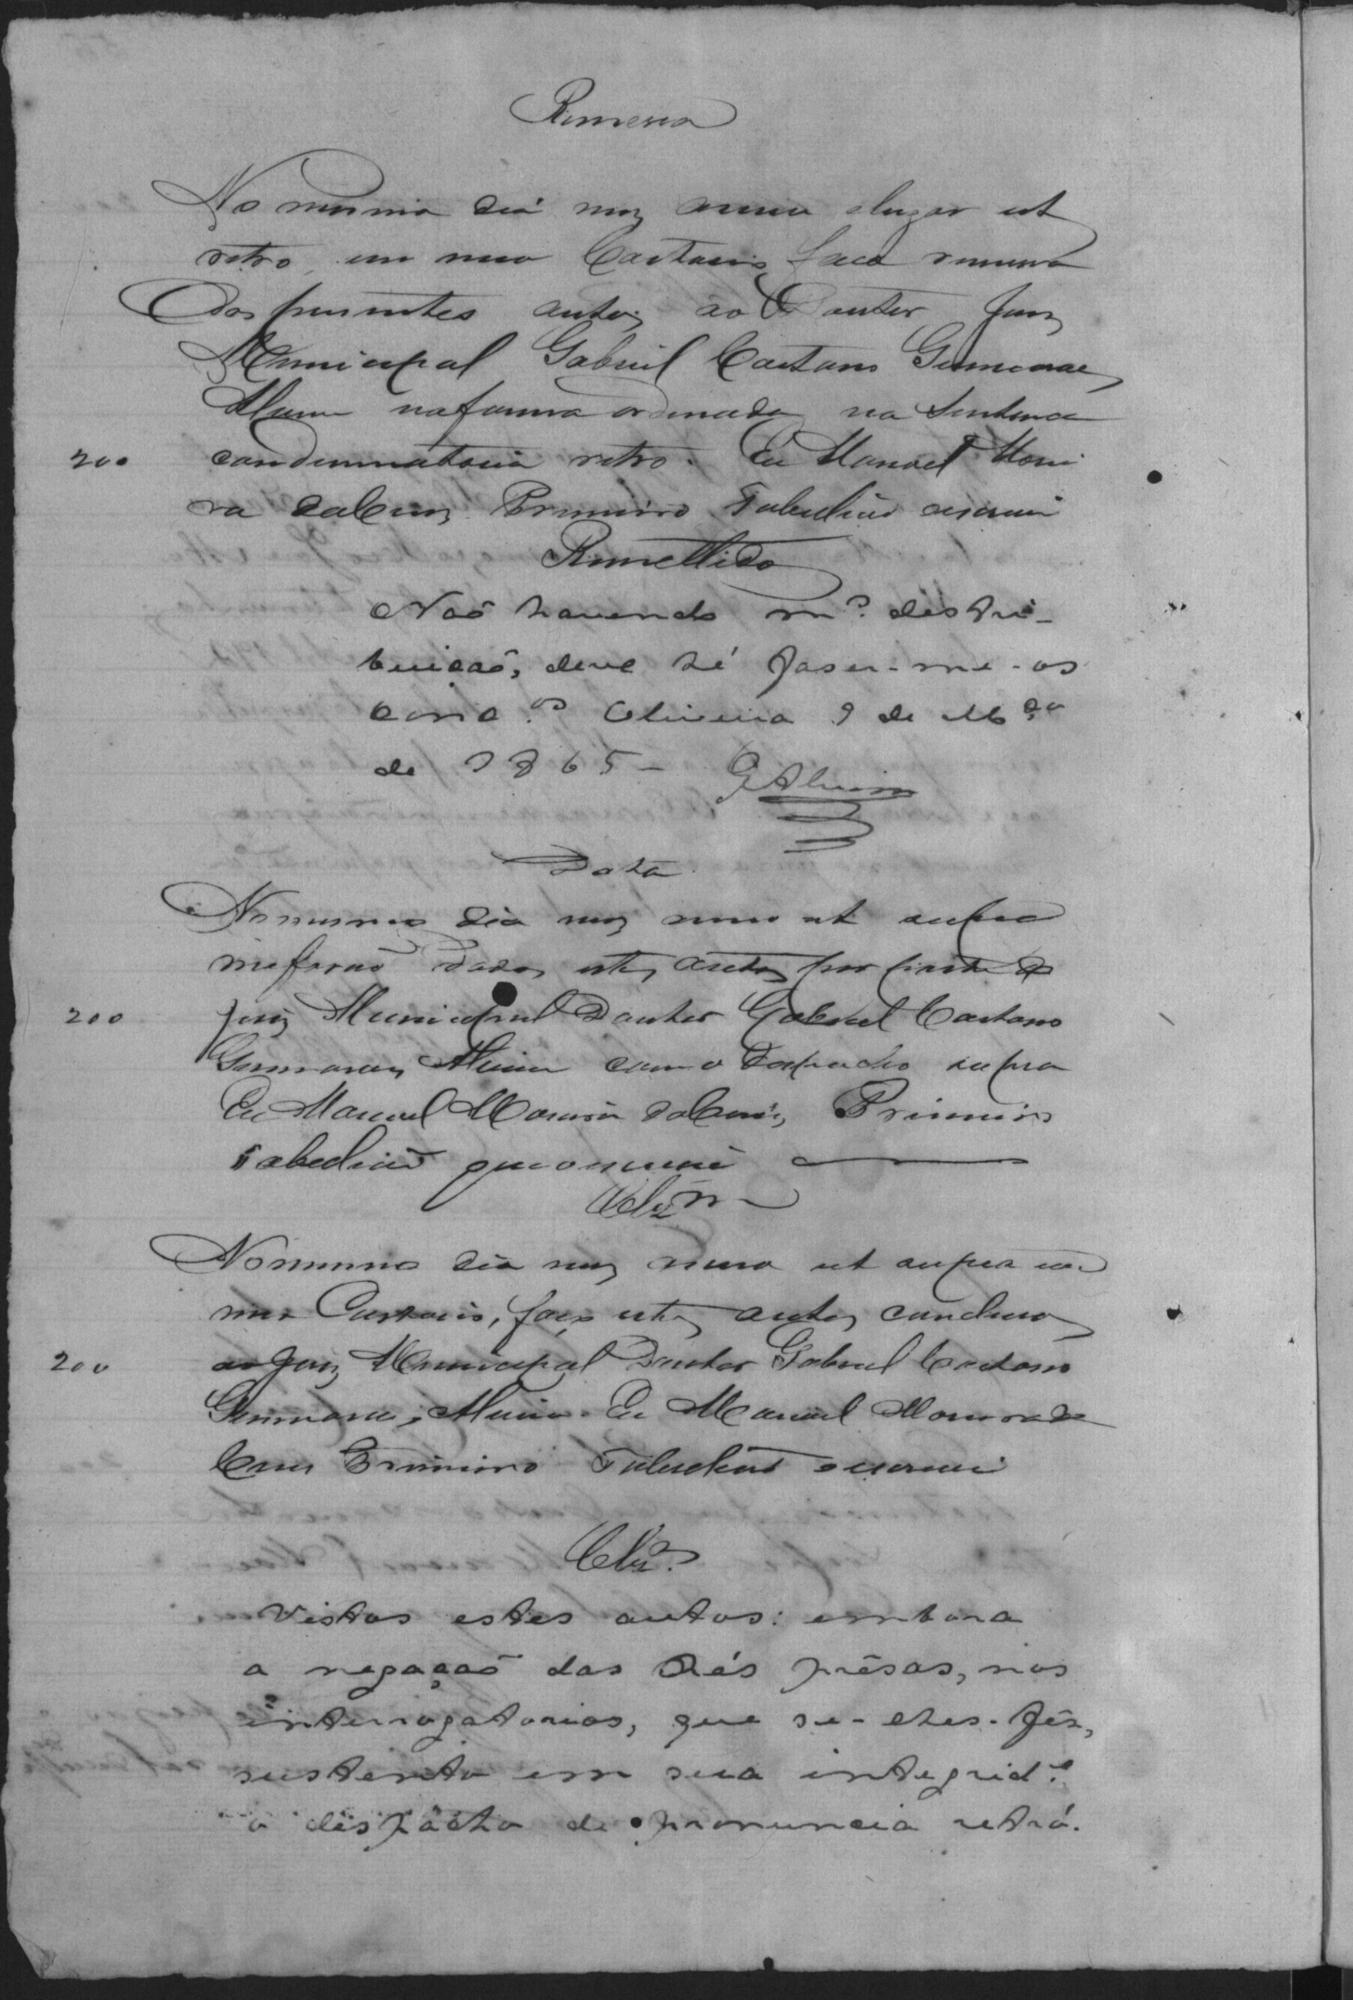 Remessa
No mesmo dia mez anno e lugar ut
retro, em meu Cartorio faço remessa
dos presentes autos ao Doutor Juiz
Municipal Gabriel Caetano Guimarães
Alvim na forma ordenada na Sentença
200 condemnatoria retro. Eu Manoel Morei
ra da Cruz Primeiro Tabelião escrevi
Remettido
Naõ havendo m.ª distri-
buiçaõ, deve só faser-me-os
conc.os Oliveira 9 de M.ço
de 1865 - GAlvim
Data
No mesmo dia mez anno ut supra
me foraõ dados estes autos por parte do
200 Juiz Municipal Doutor Gabriel Caetano
Guimarães Alvim com o Despacho supra
Eu Manoel Moreira da Cruz Primeiro
Tabelião que o escrevi
Clzm
No mesmo dia mez anno ut supra em
meu Cartorio, faço estes autos conclusos
200 ao Juiz Municipal Doutor Gabriel Caetano
Guimarães Alvim. Eu Manoel Moreira da
Cruz Primeiro Tabelião o escrevi
Clz.º
Vistos estes autos: embora
a negaçaõ das Rés présas, nos
interrogatorios, que se-lhes-fez,
sustento em sua integrid.e
o despacho de pronuncia retró.